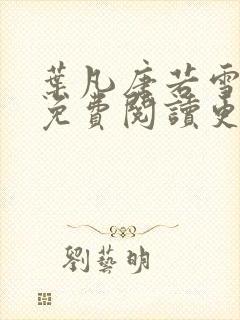 葉凡唐若雪
免費閱讀更
劉藝明